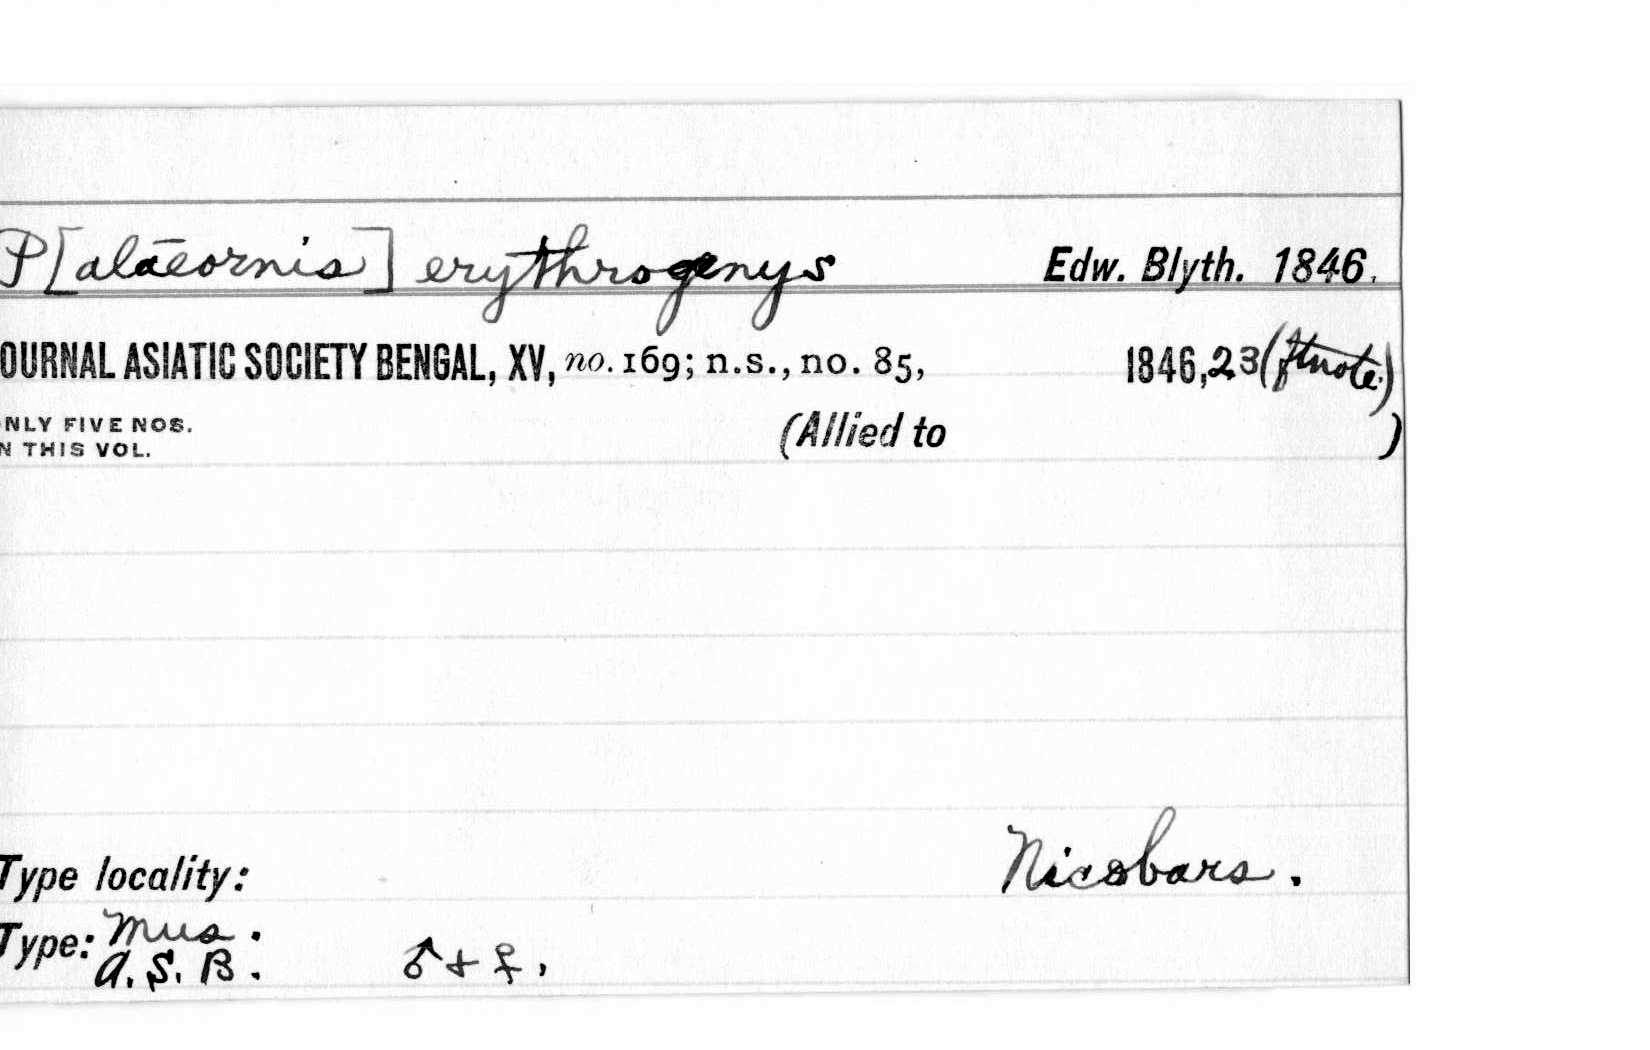 P[alaeornis] erythrogenys Edw. Blyth. 1846.
OURNAL ASIATIC SOCIETY BENGAL, XV, no. 169; n.s., no. 85, 1846, 23 (ftnote.)
NLY FIVE NOS.
N THIS VOL.
(Allied to )
Nicobars.
Type locality:
Type: Mus.
A. S. B. ♂ + ♀,